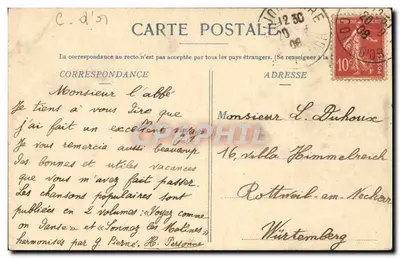 C. d'or
CARTE POSTALE
La correspondance au recto n'est pas acceptée par tous les pays étrangers. (Se renseigner à la
CORRESPONDANCE
ADRESSE
Monsieur l'abbé
Je tiens à vous dire que
j'ai fait un excellent
Je vous remercie aussi beaucoup
des bonnes et utiles vacances
que vous m'avez fait passer.
Les chansons populaires sont
publiées en 2 volumes: "Voyez comme
on danse" et "Sonnez les Matines"
harmonisées par G. Pierné. H. Personne
Monsieur L. Duhoux
16, villa Himmelreich
Rottweil-am-Neckar
Würtemberg
12 30
08
10